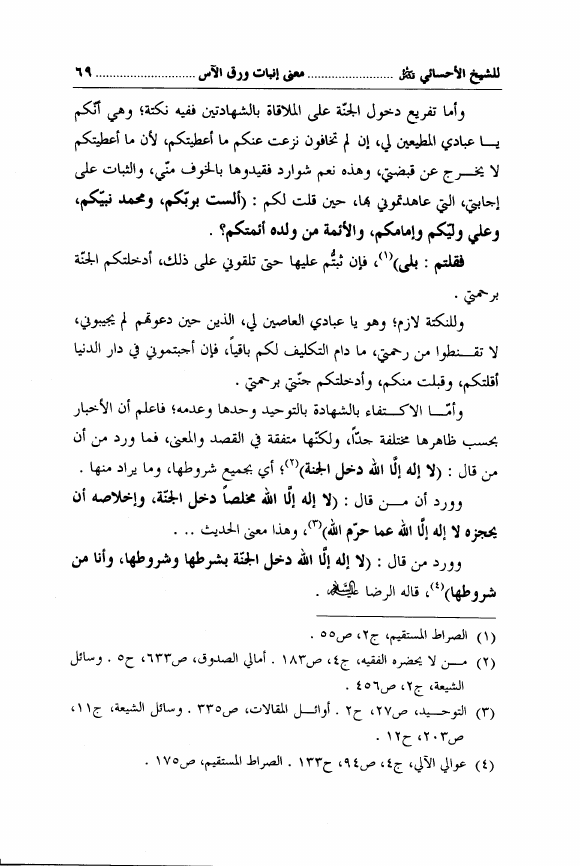 للشيخ الأحسائي قدس ........................ معنى إنبات ورق الآس ............................ ٦٩
وأما تفريع دخول الجنّة على الملاقاة بالشهادتين ففيه نكتة؛ وهي أنّكم
يـا عبادي المطيعين لي، إن لم تخافون نزعت عنكم ما أعطيتكم، لأن ما أعطيتكم
لا يخـرج عن قبضتي، وهذه نعم شوارد فقيدوها بالخوف منّي، والثبات على
إجابتي، التي عاهدتموني بها، حين قلت لكم : (ألست بربّكم، ومحمد نبيّكم،
وعلي وليّكم وإمامكم، والأئمة من ولده أئمتكم؟ .
فقلتم : بلى)(١)، فإن ثبتُّم عليها حتى تلقوني على ذلك، أدخلتكم الجنّة
برحمتي .
وللنكتة لازم؛ وهو يا عبادي العاصين لي، الذين حين دعوتهم لم يجيبوني،
لا تقـنطوا من رحمتي، ما دام التكليف لكم باقياً، فإن أجبتموني في دار الدنيا
أقلتكم، وقبلت منكم، وأدخلتكم جنّتي برحمتي .
وأمّـا الاكـتفاء بالشهادة بالتوحيد وحدها وعدمه؛ فاعلم أن الأخبار
بحسب ظاهرها مختلفة جدّاً، ولكنّها متفقة في القصد والمعنى، فما ورد من أن
من قال : (لا إله إلّا الله دخل الجنة)(٢)؛ أي بجميع شروطها، وما يراد منها .
وورد أن مـن قال : (لا إله إلّا الله مخلصاً دخل الجنّة، وإخلاصه أن
يحجزه لا إله إلّا الله عما حرّم الله)(٣)، وهذا معنى الحديث ...
وورد من قال : (لا إله إلّا الله دخل الجنّة بشرطها وشروطها، وأنا من
شروطها)(٤)، قاله الرضا عليه السلام .
(١) الصراط المستقيم، ج٢، ص٥٥ .
(٢) مـن لا يحضره الفقيه، ج٤، ص١٨٣ . أمالي الصدوق، ص٦٣٣، ح٥ . وسائل
الشيعة، ج٢، ص٤٥٦ .
(٣) التوحـيد، ص٢٧، ح٢ . أوائـل المقالات، ص٣٣٥ . وسائل الشيعة، ج١١،
ص٢٠٣، ح١٢ .
(٤) عوالي الآلي، ج٤، ص٩٤، ح١٣٣ . الصراط المستقيم، ص١٧٥ .